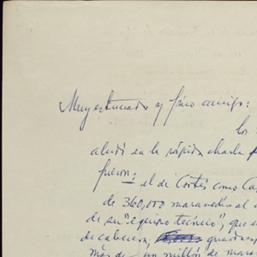 Muy estimado y fino amigo:
los
aludí en la rápida charla
fueron: el de Cortés como Ca
de 360,000 maravedís al
de su "equipo técnico", que
de cabecera,
más de un millón de mara